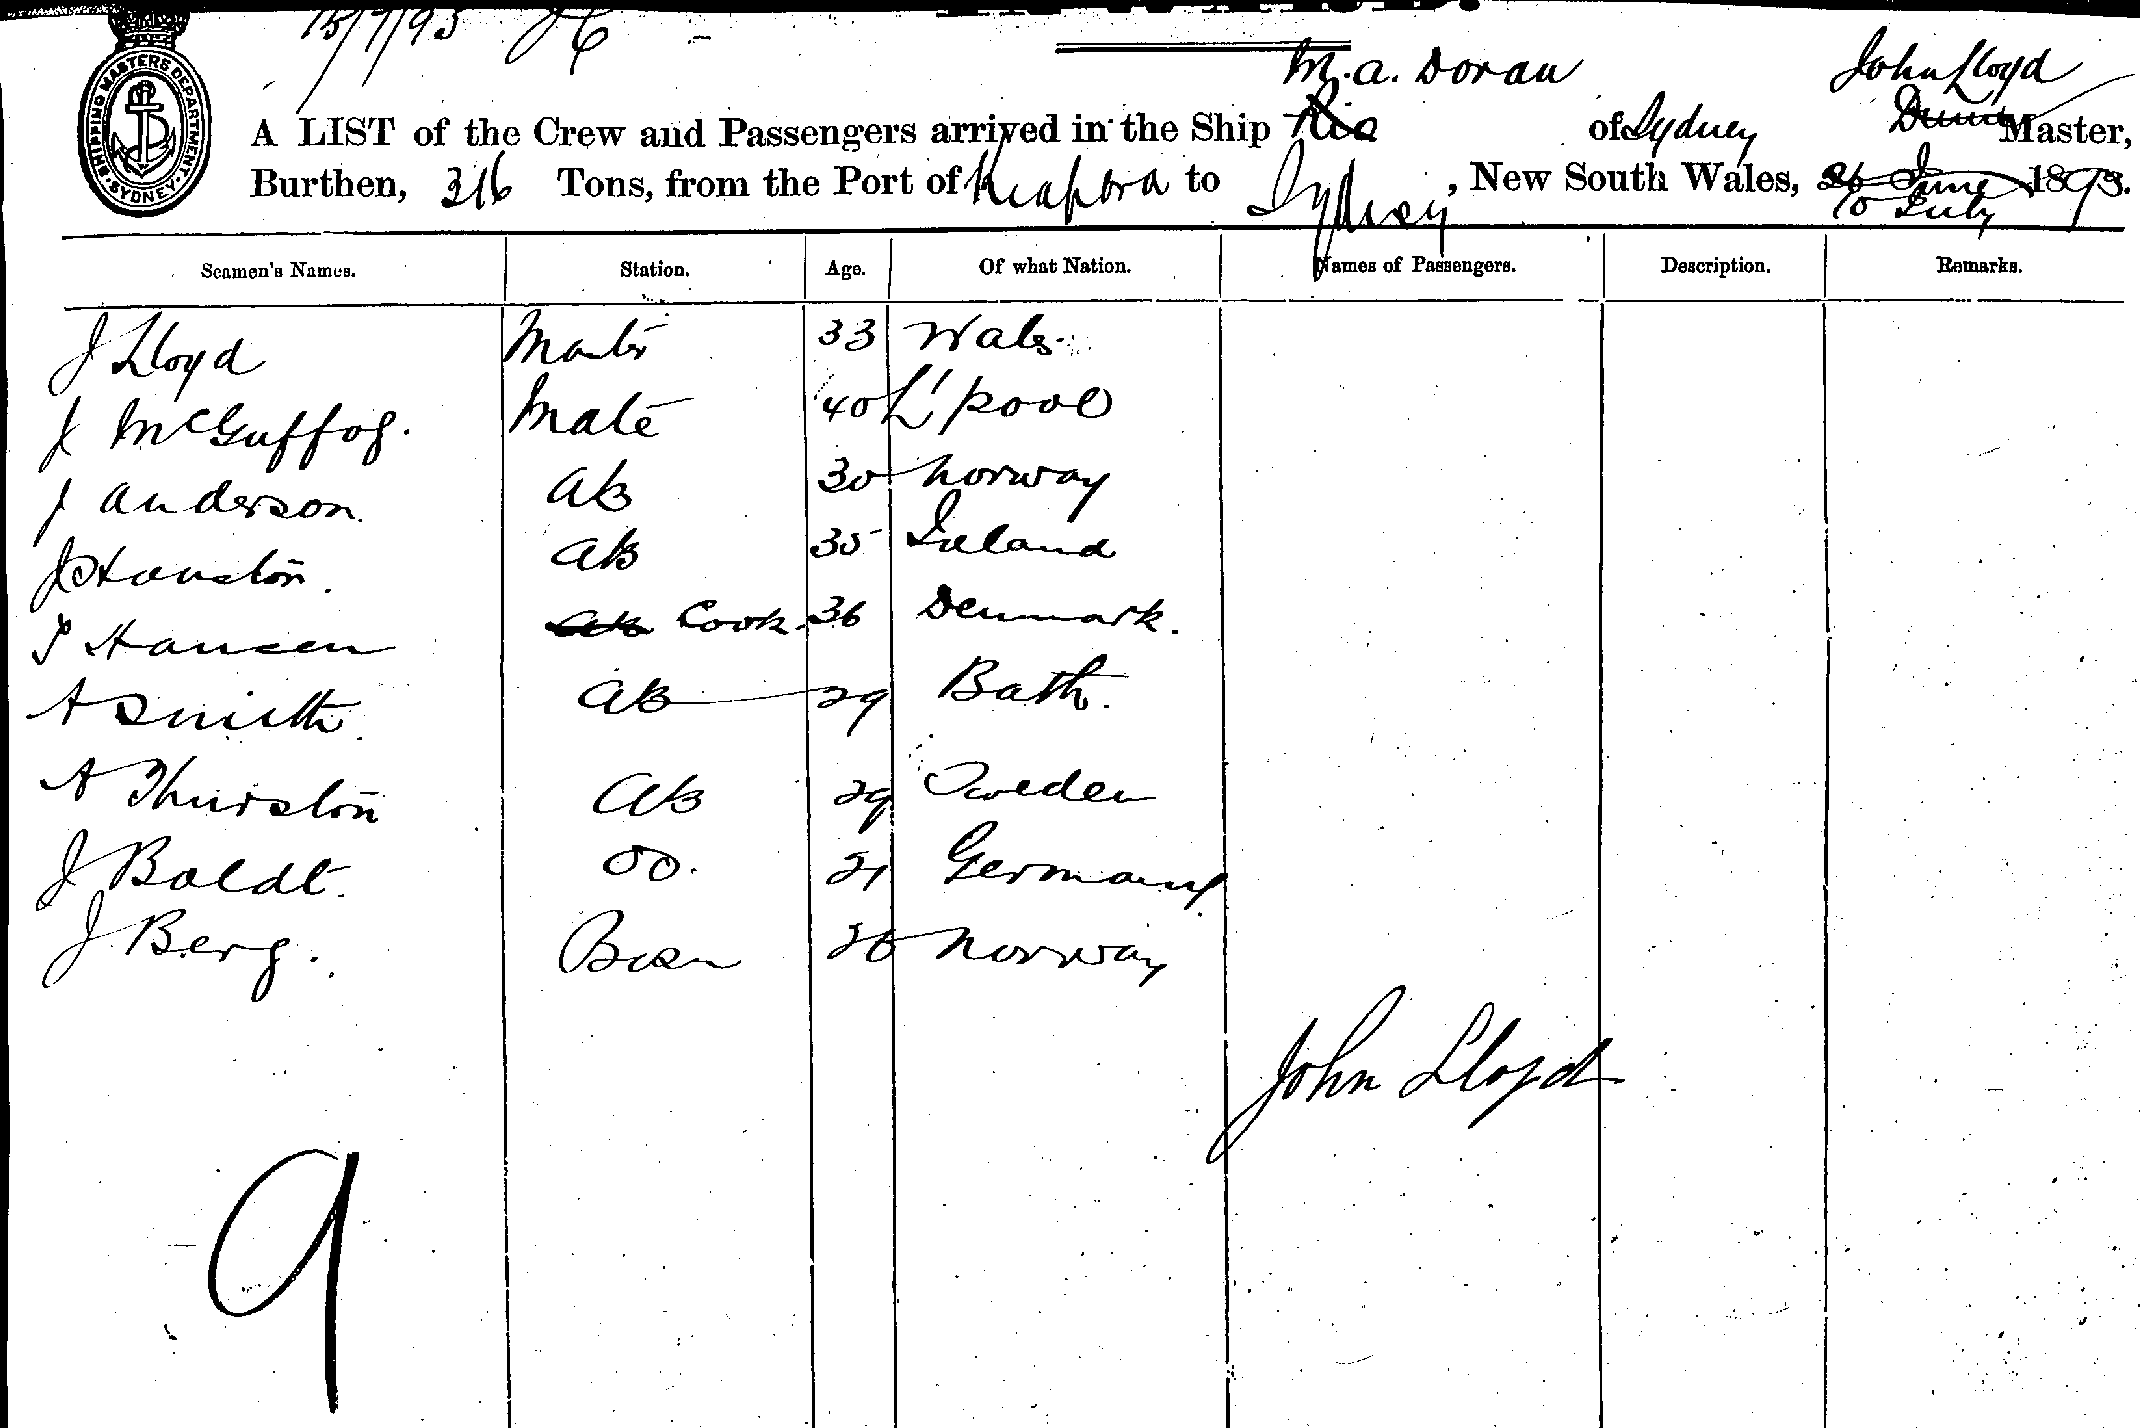 15/7/95
M.a. Doran John Lloyd
SHIPPING MASTERS DEPARTMENT. SYDNEY.
A LIST of the Crew and Passengers arrived in the Ship Rio of Sydney Master,
Burthen, 316 Tons, from the Port of Kiapara to Sydney, New South Wales, 26 June 1895.
10 July
Seamen's Names. Station. Age. Of what Nation. Names of Passengers. Description. Remarks.
J Lloyd Master 33 Wales.
J McGuffog. Mate 40 L'pool
J Anderson. AB 30 Norway
J Houston. AB 35
P Hansen AB Cook. 36 Denmark.
A Smith. AB 29 Bath.
A Thurston AB 29 Sweden
J Boldt. OS. 21 Germany.
J Berg. Bosn 26 Norway
John Lloyd
9